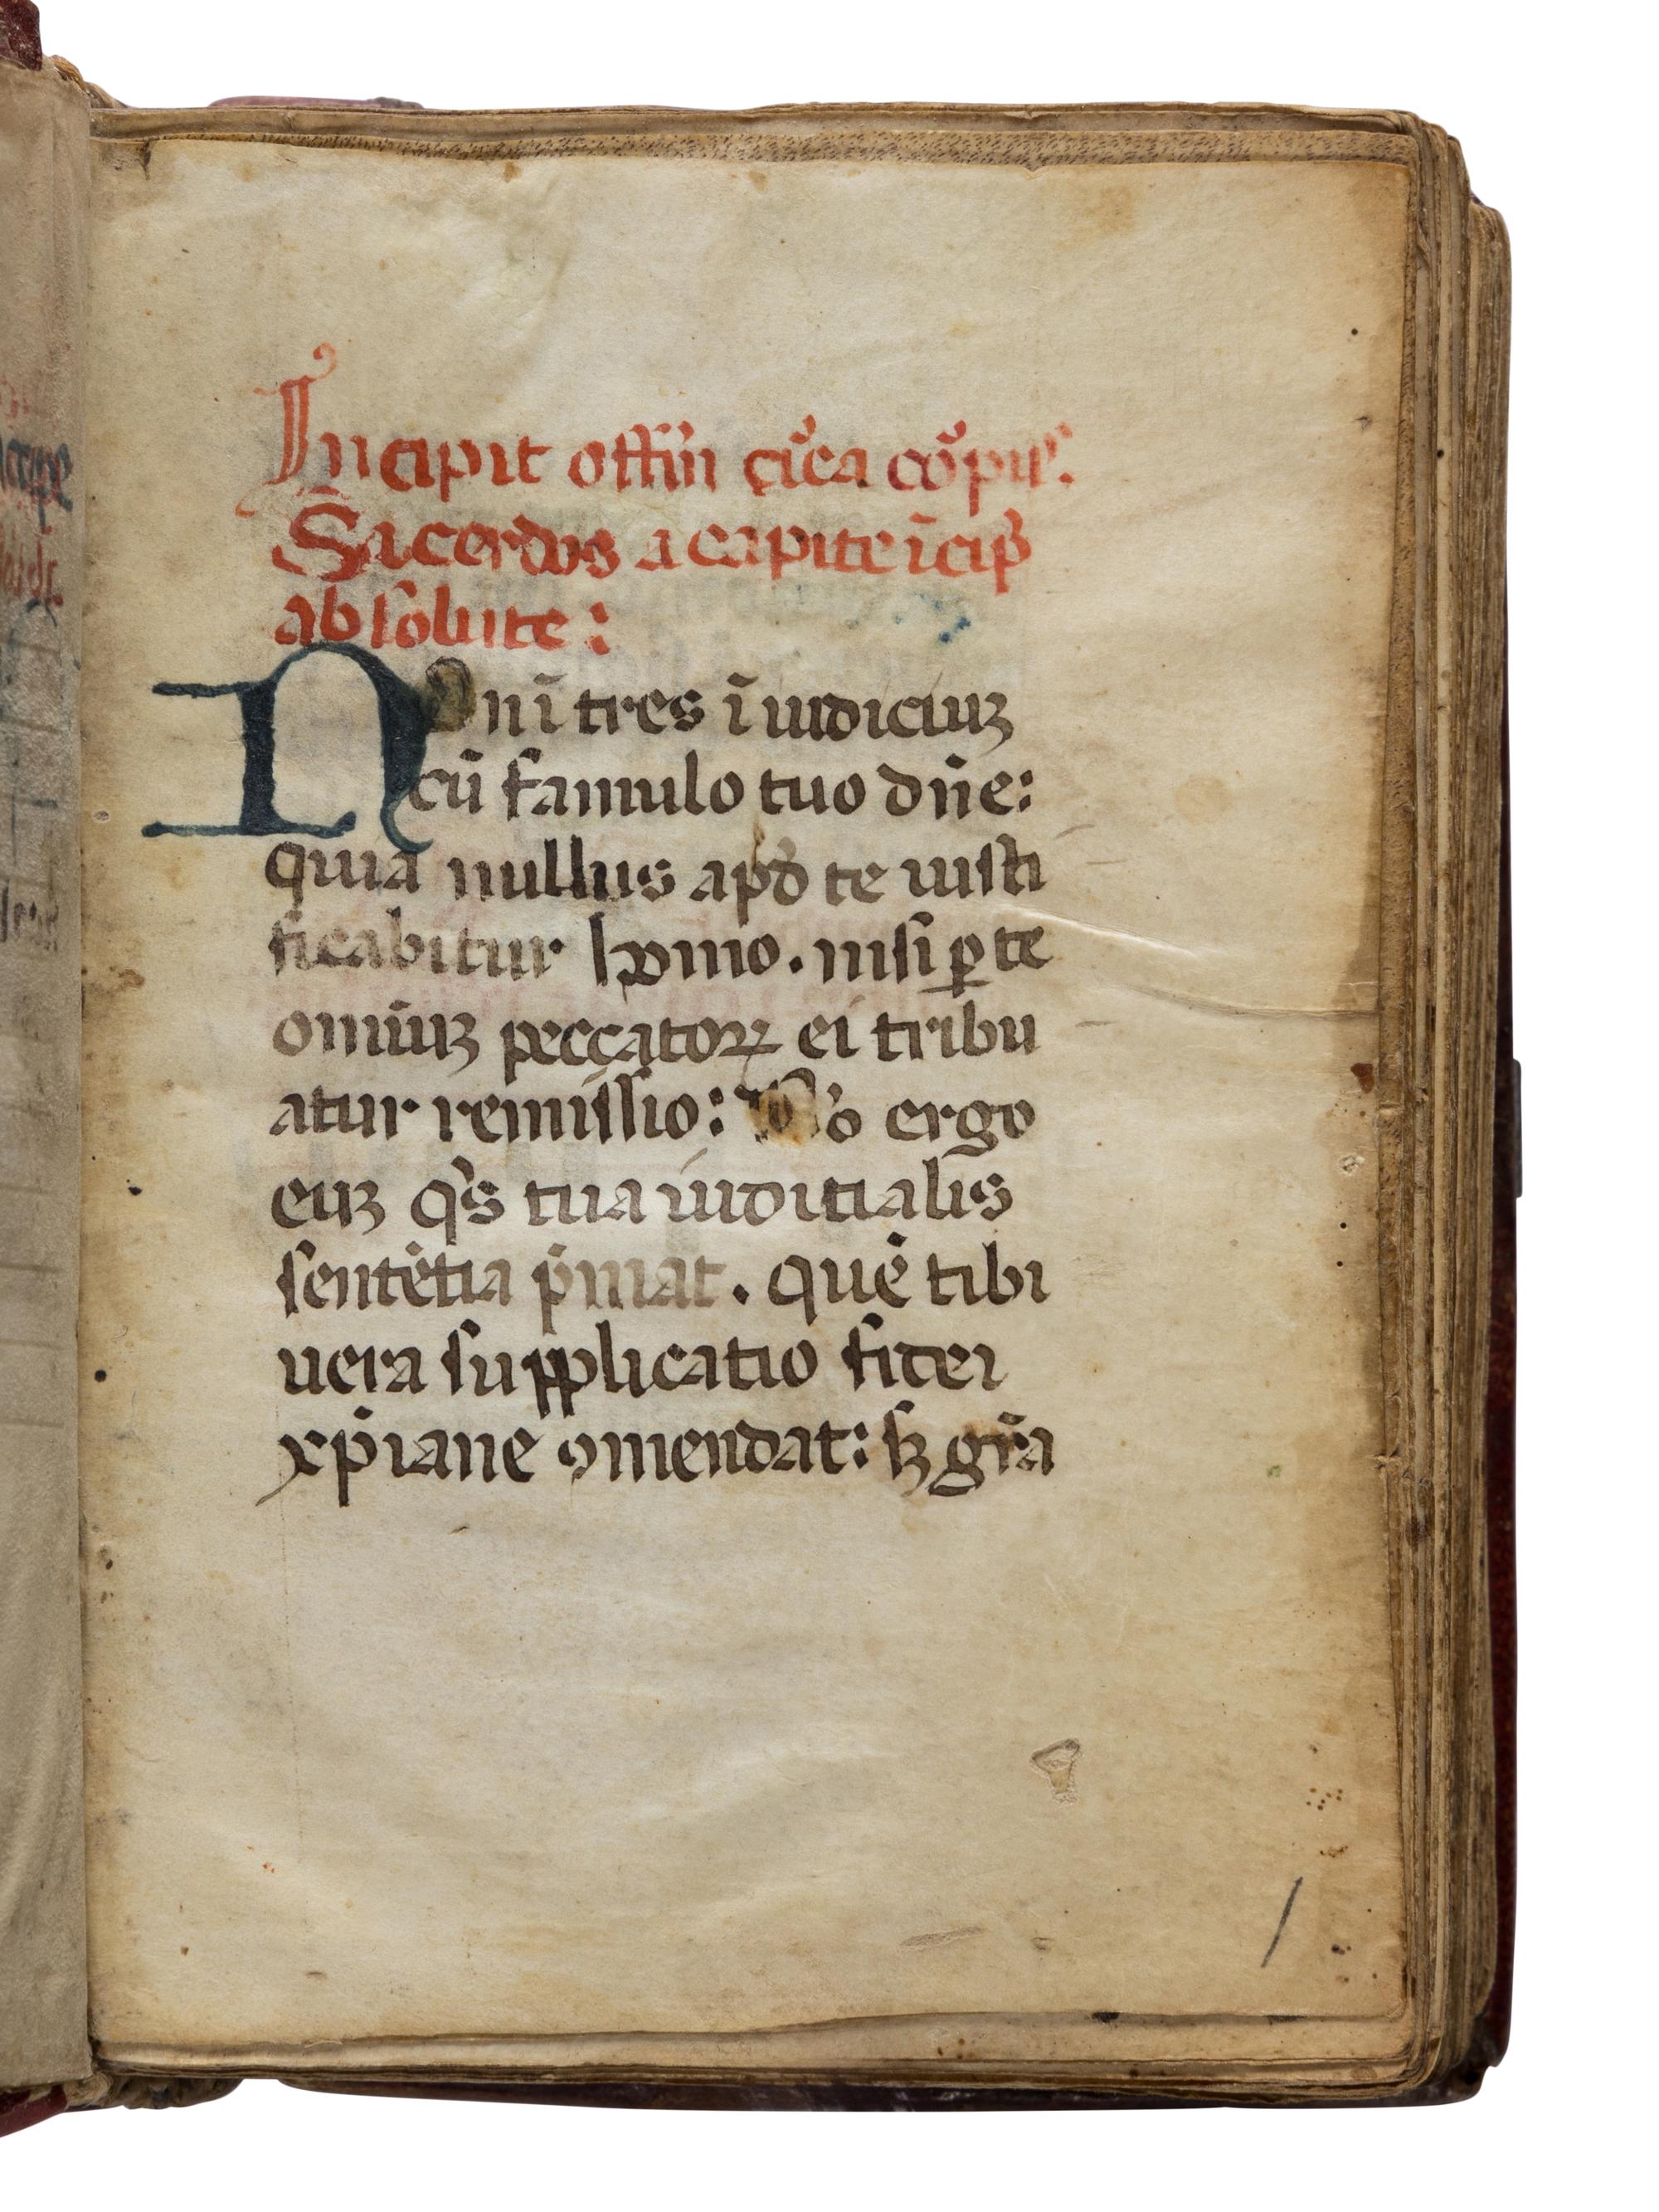 Incipit offiñ circa cõpus.
Sacerdos a capite ĩcip̃
absolute:
Non ĩtres ĩ iudiciuꝫ
cũ famulo tuo dñe:
quia nullus apď te iusti
ficabitur homo. nisi ꝑ te
omĩuꝫ peccatoꝝ ei tribu
atur remissio: ergo
euꝫ qꝰs tua iuditialis
sentẽtia p̃mat. quẽ tibi
uera supplicatio fidei
xp̃iane ꝯmendat: sꝫ gr̃a